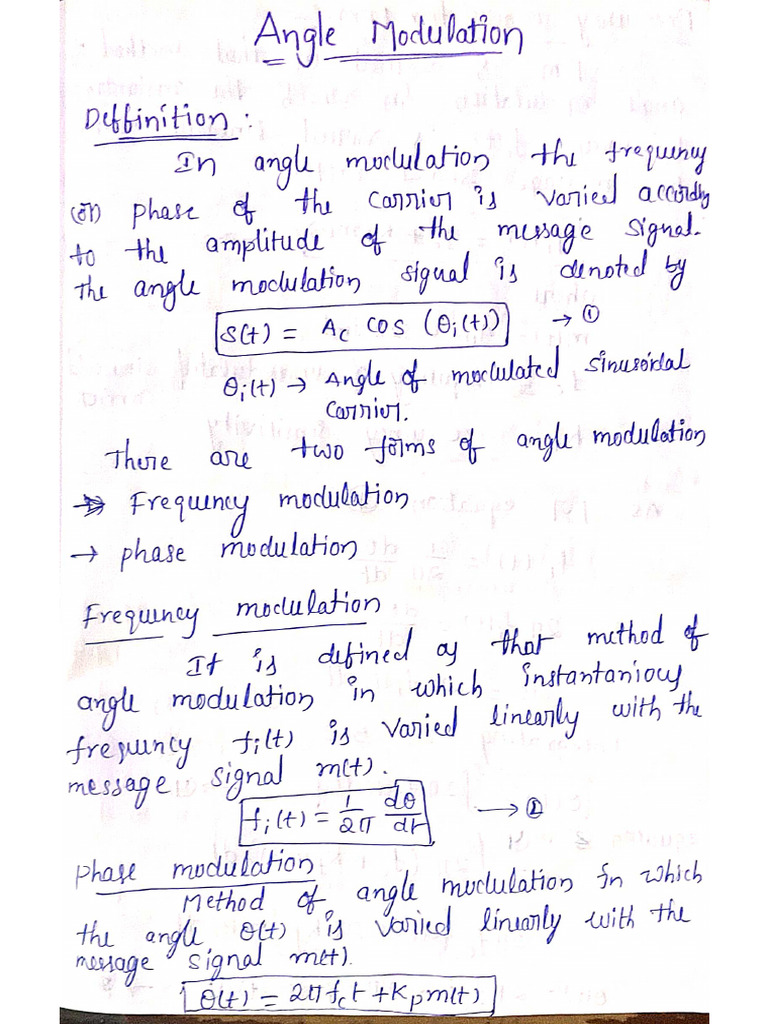 Angle Modulation
Deffinition :
In angle modulation the frequency
(or) phase of the carrier is varied accordly
to the amplitude of the message signal.
The angle modulation signal is denoted by
S(t) = Ac cos (θi(t)) → ①
θi(t) → Angle of modulated sinusoidal
carrier.
There are two forms of angle modulation
→ Frequency modulation
→ phase modulation
Frequency modulation
It is defined as that method of
angle modulation in which instantanious
frequency fi(t) is varied linearly with the
message signal m(t).
fi(t) = 1/2π dθ/dt → ②
Phase modulation
Method of angle modulation in which
the angle θ(t) is varied linearly with the
message signal m(t).
θ(t) = 2πfct + Kpm(t)